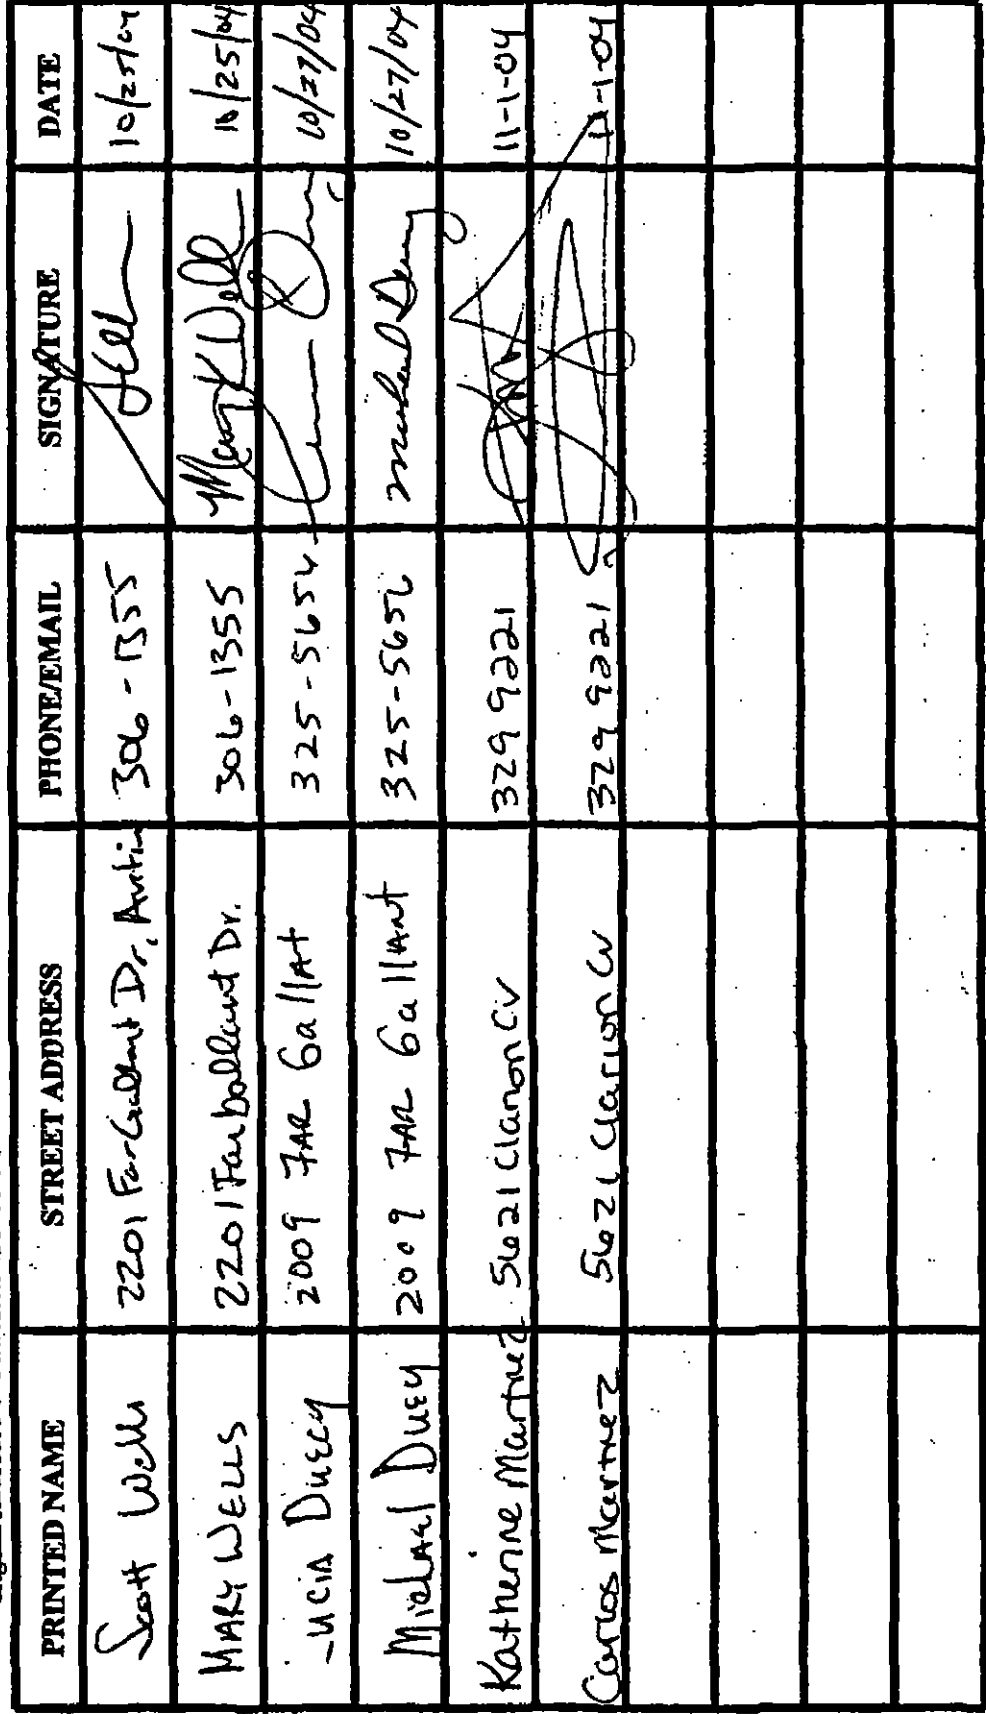 PRINTED NAME STREET ADDRESS PHONE/EMAIL SIGNATURE DATE
Scott Wells 2201 Far Gallant Dr, Austin 306-1355 10/25/04
MARY WELLS 2201 Far Gallant Dr. 306-1355 Mary K Wells 10/25/04
LUCIA DUEEY 2009 FAR GallAt 325-5656 10/27/04
MichAel DuEy 2009 FAR GallAnt 325-5656 Michael Duey 10/27/04
Katherine Martinez 5621 Clarion Cv 329 9221 11-1-04
Carlos Martinez 5621 Clarion Cv 329 9221 11-1-04